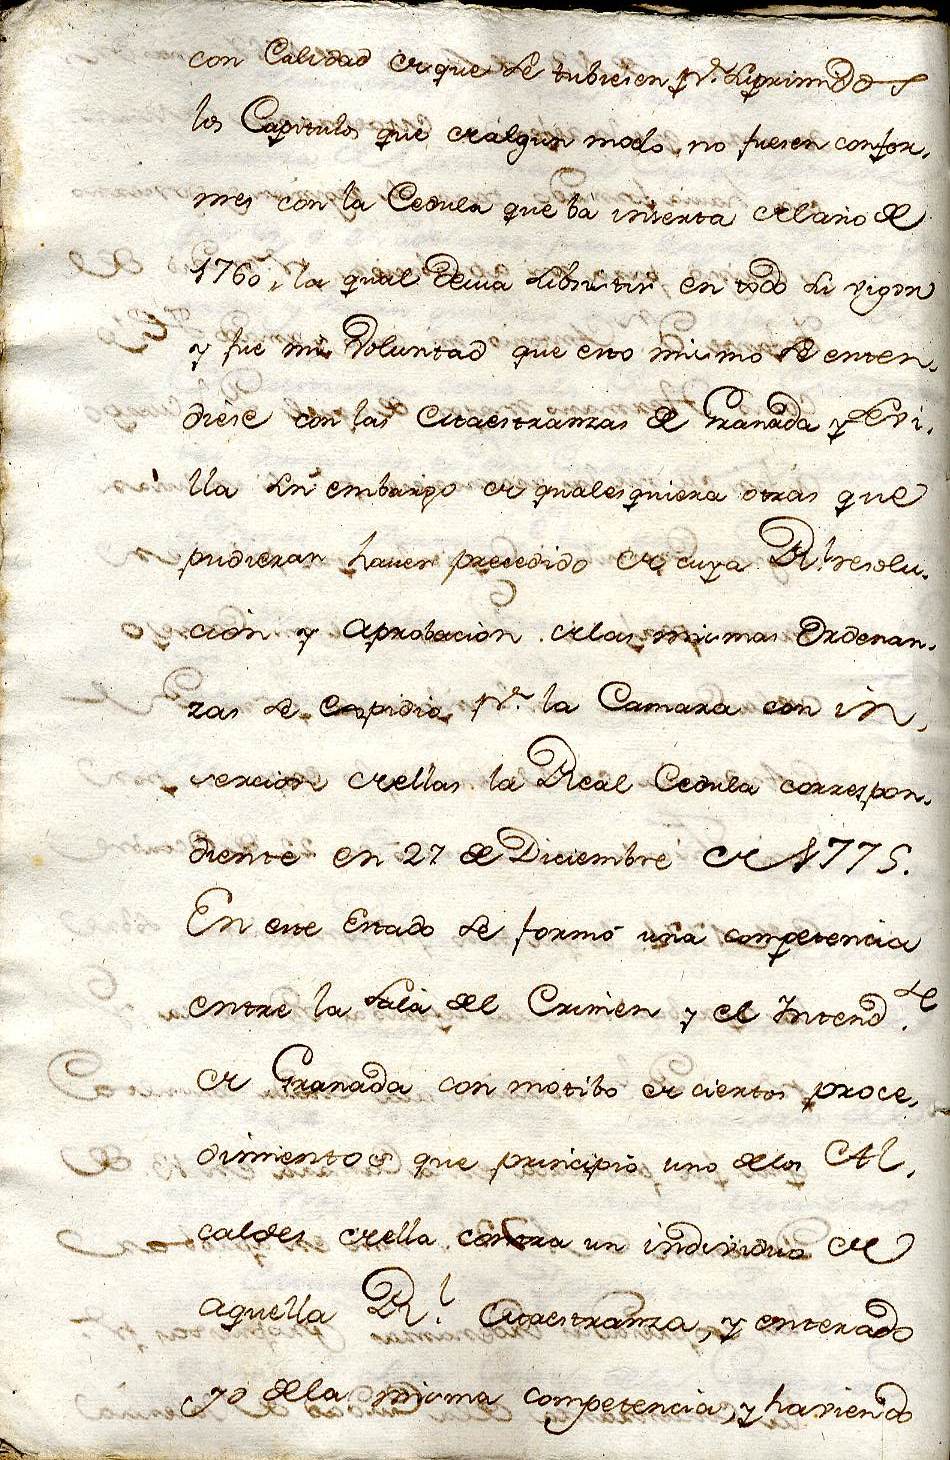 con Calidad de que se tubiesen p.r suprimidos
los Capitulos que de algun modo no fuesen confor-
mes con la Cedula que ba inserta del año de
1760, la qual devia subsistir en todo su vigor
y fue mi Voluntad que esto mismo se enten-
diese con las Maestranzas de Granada y Sevi-
lla sin embargo de qualesquiera otras que
pudieran haver precedido de cuya R.l resolu-
ción y aprobacion de las mismas Ordenan-
zas se expidio p.r la Camara con in-
sercion de ellas la Real Cedula correspon-
diente en 27 de Diciembre de 1775.
En este Estado se formó una competencia
entre la Sala del Crimen y el Intend.te
de Granada con motibo de ciertos proce-
dimientos que principió uno de los Al-
caldes de ella contra un individuo de
aquella R.l Maestranza, y enterado
yo de la misma competencia, y haviendo